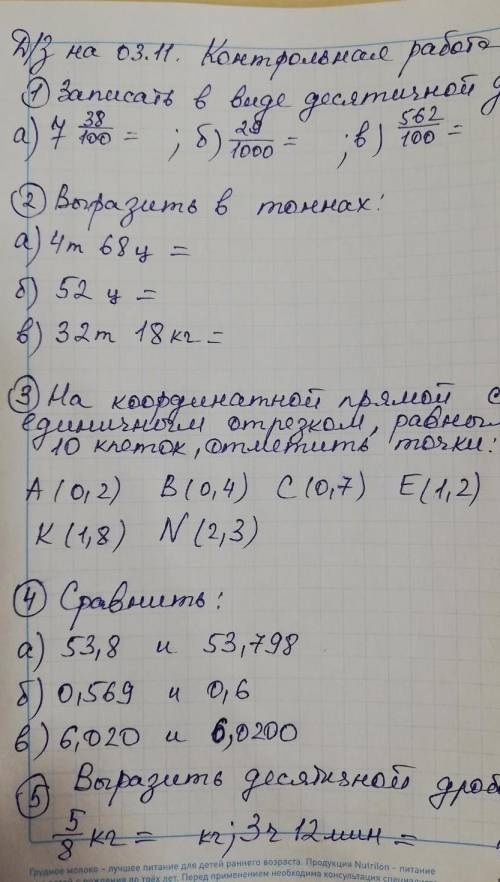 Д/З на 03.11. Контрольная работа
① Записать в виде десятичной
а) 7 38/100 = ; б) 29/1000 = ; в) 562/100 =
② Выразить в тоннах:
а) 4т 68ц =
б) 52 ц =
в) 32т 18кг =
③ На координатной прямой с
единичным отрезком, равным
10 клеток, отметить точки:
А(0,2) В(0,4) С(0,7) Е(1,2)
К(1,8) N(2,3)
④ Сравнить:
а) 53,8 и 53,798
б) 0,569 и 0,6
в) 6,020 и 6,0200
⑤ Выразить десятичной дроб
5/8 кг = кг; 3ч 12мин =
Грудное молоко – лучшее питание для детей раннего возраста. Продукция Nutrilon – питание
с рождения до трёх лет. Перед применением необходима консультация специалис